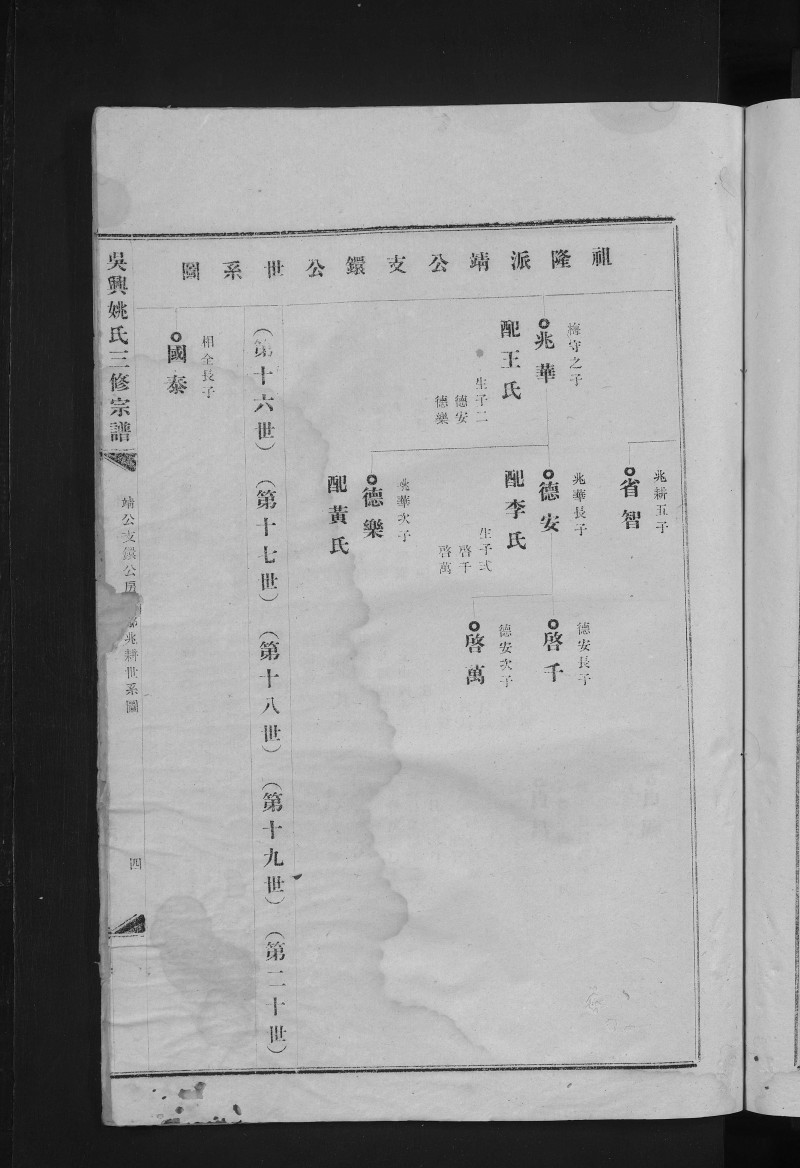 祖隆派靖公支鐶公世系圖
兆耕五子
省智
梅守之子
兆華
配王氏
生子二
德安
德樂
兆華長子
德安
配李氏
生子弍
啓千
啓萬
德安長子
啓千
德安次子
啓萬
兆華次子
德樂
配黃氏
(第十六世)(第十七世)(第十八世)(第十九世)(第二十世)
相全長子
國泰
吳興姚氏三修宗譜
靖公支鐶公房
兆耕世系圖
四